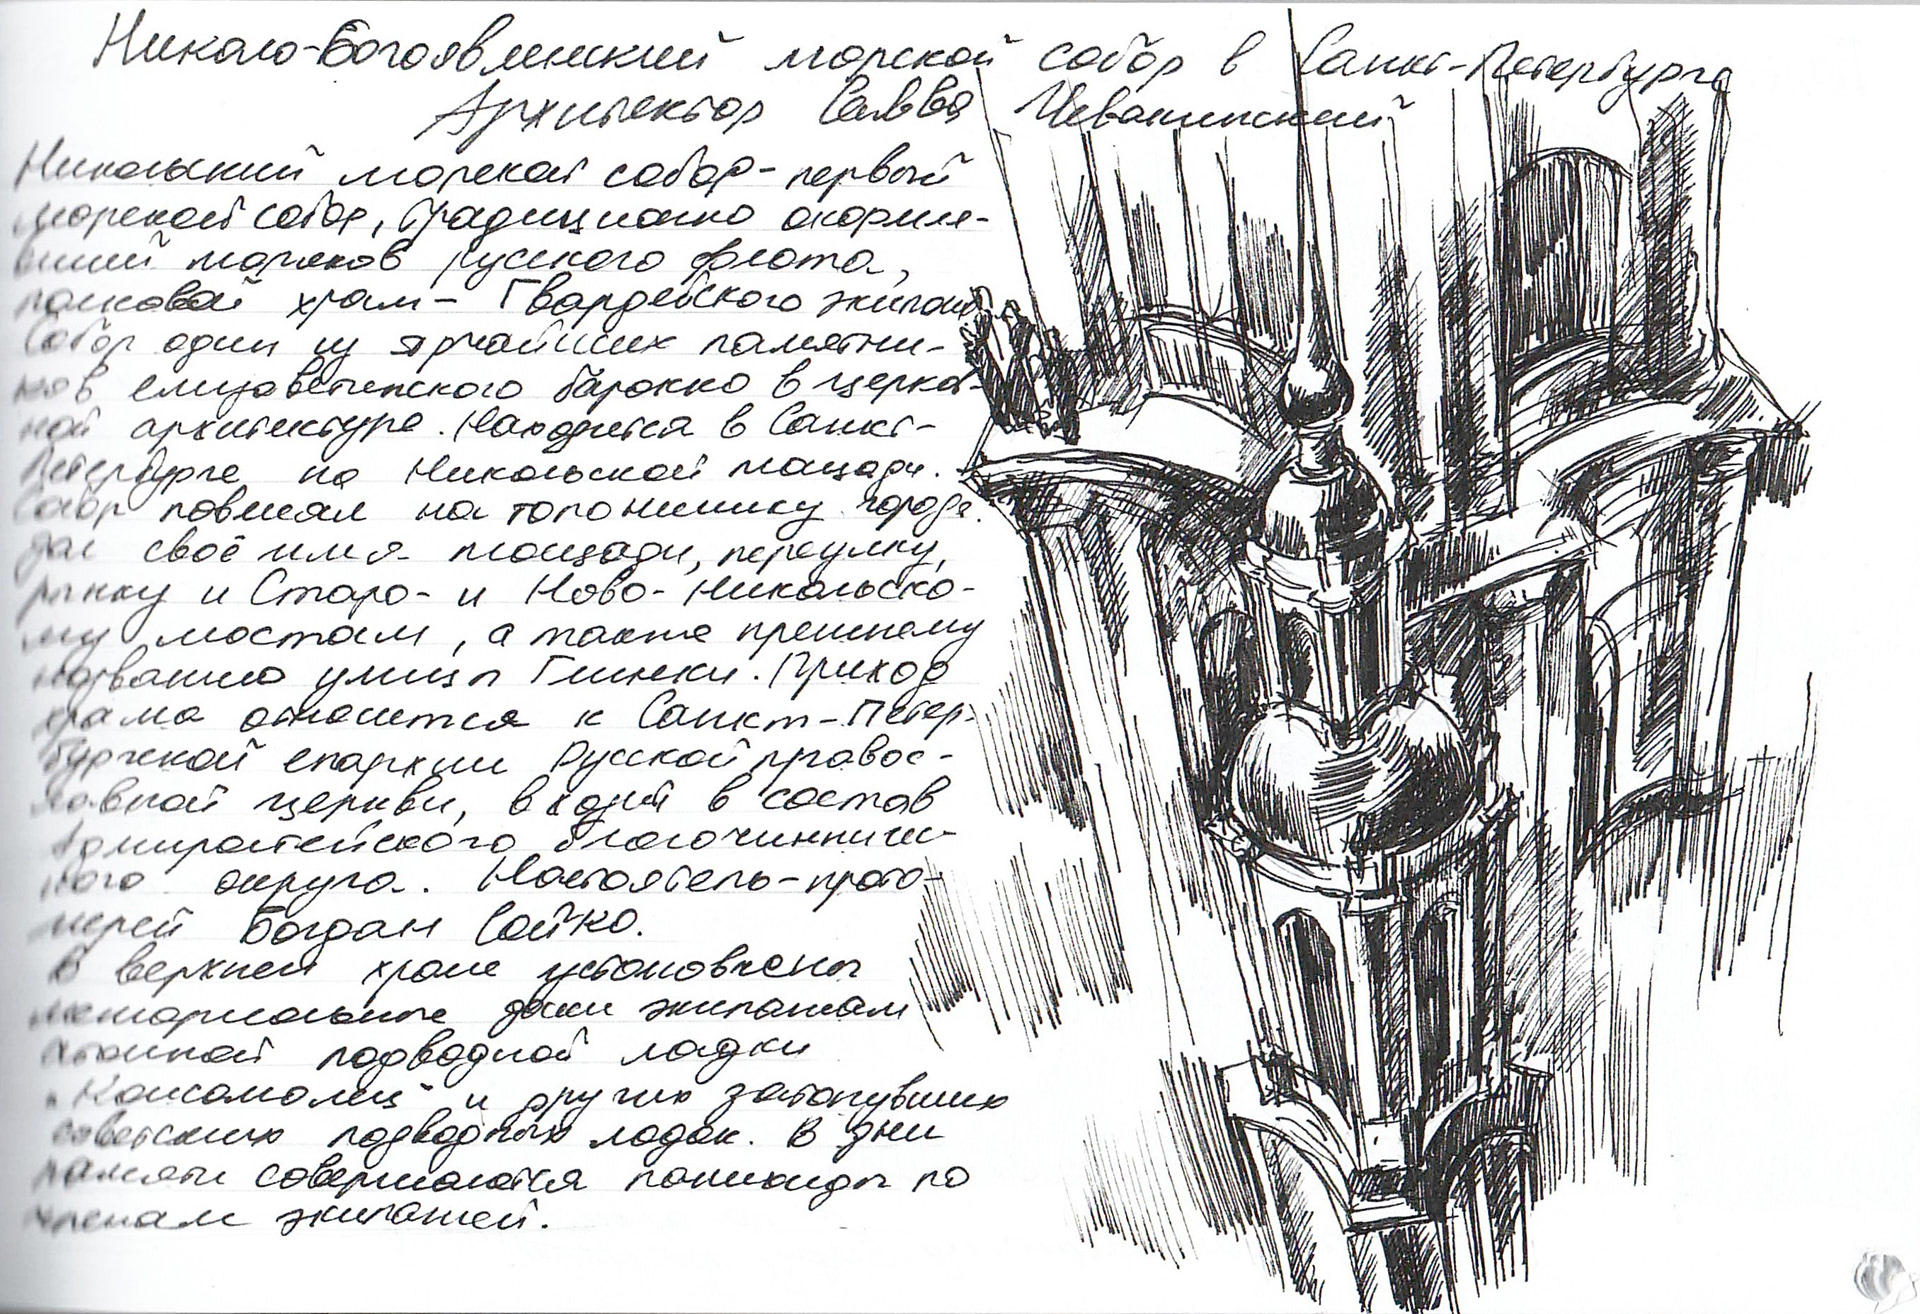 Николо-Богоявленский морской собор в Санкт-Петербурге
Архитектор Савва Чевакинский
Никольский морской собор - первый
морской собор, традиционно окормля-
вший моряков русского флота,
полковой храм - Гвардейского экипажа
Собор один из ярчайших памятни-
ков елизаветинского барокко в церков-
ной архитектуре. Находится в Санкт-
Петербурге на Никольской площади.
Собор повлиял на топонимику города.
дал своё имя площади, переулку,
рынку и Старо- и Ново-Никольско-
му мостам, а также прежнему
названию улицы Глинки. Приход
храма относится к Санкт-Петер-
бургской епархии Русской правос-
лавной церкви, входит в состав
Адмиралтейского благочинниче-
кого округа. Настоятель - прото-
иерей Богдан Сойко.
В верхнем храме установлены
мемориальные доски экипажам
атомной подводной лодки
"Комсомолец" и других затонувших
советских подводных лодок. В дни
памяти совершаются панихиды по
членам экипажей.